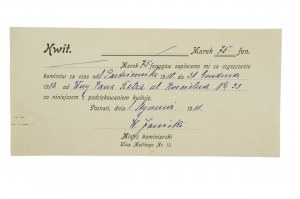 Kwit. Marek 75 fen.
Marek 75 fenygów zapłacono mi za czyszczenie
kominów za czas od 1 Października 1910 do 31 Grudnia
1910 od Wny Pana ul. No 23
co niniejszem z podziękowaniem kwituję.
Poznań, dnia 1 Stycznia 1911
Mistrz kominiarski
Ulica Moltkego Nr. 13.